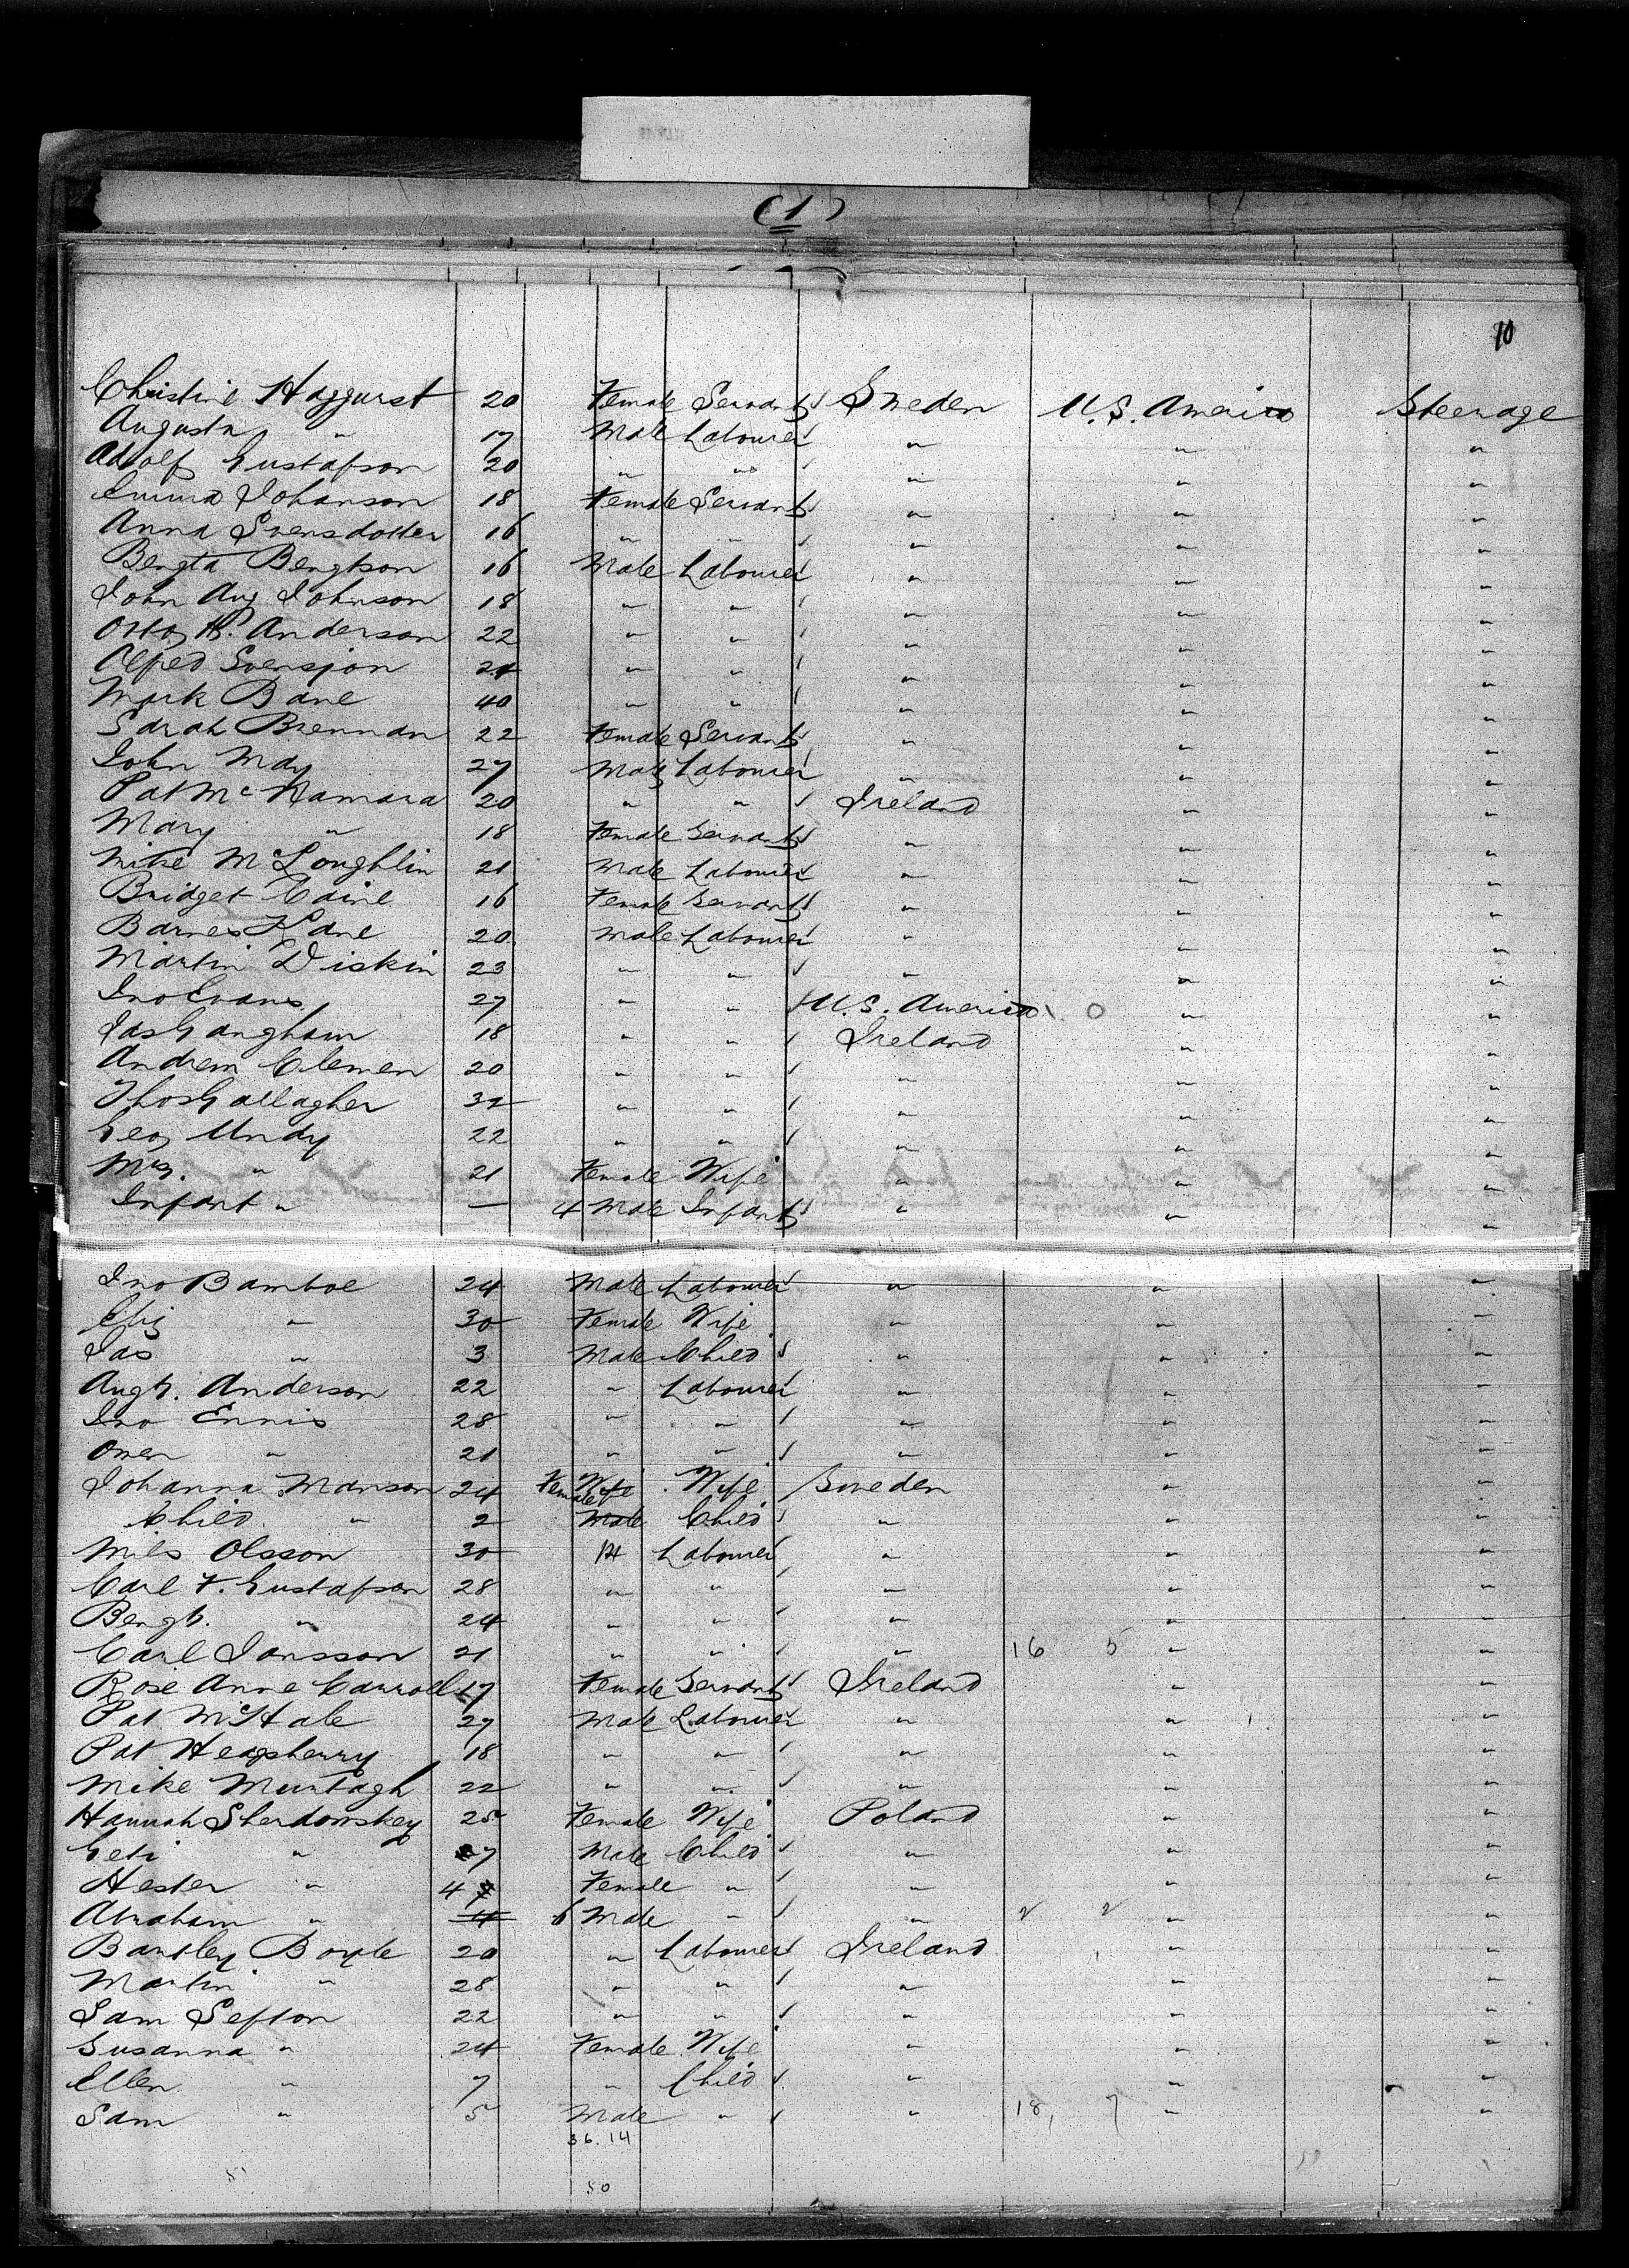 (1)
10
Christine Haggurst 20 Female Servant Sweden U.S. America Steerage
Augusta " 17 Male Labourer " " "
Adolf Gustafson 20 " " " " "
Emma Johanson 18 Female Servant " " "
Anna Svensdotter 16 " " " " "
Bengta Bengtson 16 Male Labourer " " "
John Aug Johnson 18 " " " " "
Otto P. Anderson 22 " " " " "
Alfred Svensjon 21 " " " " "
Mark Bane 40 " " " " "
Sarah Brennan 22 Female Servant " " "
John May 27 Male Labourer " " "
Pat McNamara 20 " " Ireland " "
Mary " 18 Female Servant " " "
Mike McLoughlin 21 Male Labourer " " "
Bridget Caine 16 Female Servant " " "
Barnes Kane 20 Male Labourer " " "
Martin Diskin 23 " " " " "
Jno Evans 27 " " U.S. America 0 " "
Jas Gangham 18 " " Ireland " "
Andrew Clemen 20 " " " " "
Thos Gallagher 32 " " " " "
Geo Undy 22 " " " " "
Mrs. " 21 Female Wife " " "
Infant " — 4 Male Infant " " "
Jno Bamboe 24 Male Labourer " " "
Eliz " 30 Female Wife " " "
Jas " 3 Male Child " " "
Augt. Anderson 22 " Labourer " " "
Jno Ennis 28 " " " " "
Owen " 21 " " " " "
Johanna Manson 24 Female Wife Wife Sweden " "
Child " 2 Male Child " " "
Nils Olsson 30 M Labourer " " "
Carl F. Gustafson 28 " " " " "
Bengt. " 24 " " " " "
Carl Jonsson 21 " " " 16 5 " "
Rose Anne Carroll 17 Female Servant Ireland " "
Pat McHale 27 Male Labourer " " "
Pat Heapsberry 18 " " " " "
Mike Murtagh 22 " " " " "
Hannah Sherdowskey 25 Female Wife Poland " "
Geti " 7 Male Child " " "
Hester " 4 Female " " " "
Abraham " 11 6 Male " " 2 2 " "
Bartley Boyle 20 " Labourer Ireland " "
Martin " 28 " " " " "
Sam Sefton 22 " " " " "
Susanna " 24 Female Wife " " "
Ellen " 7 " Child " " "
Sam " 5 Male " " 18, 7 " "
36. 14
50